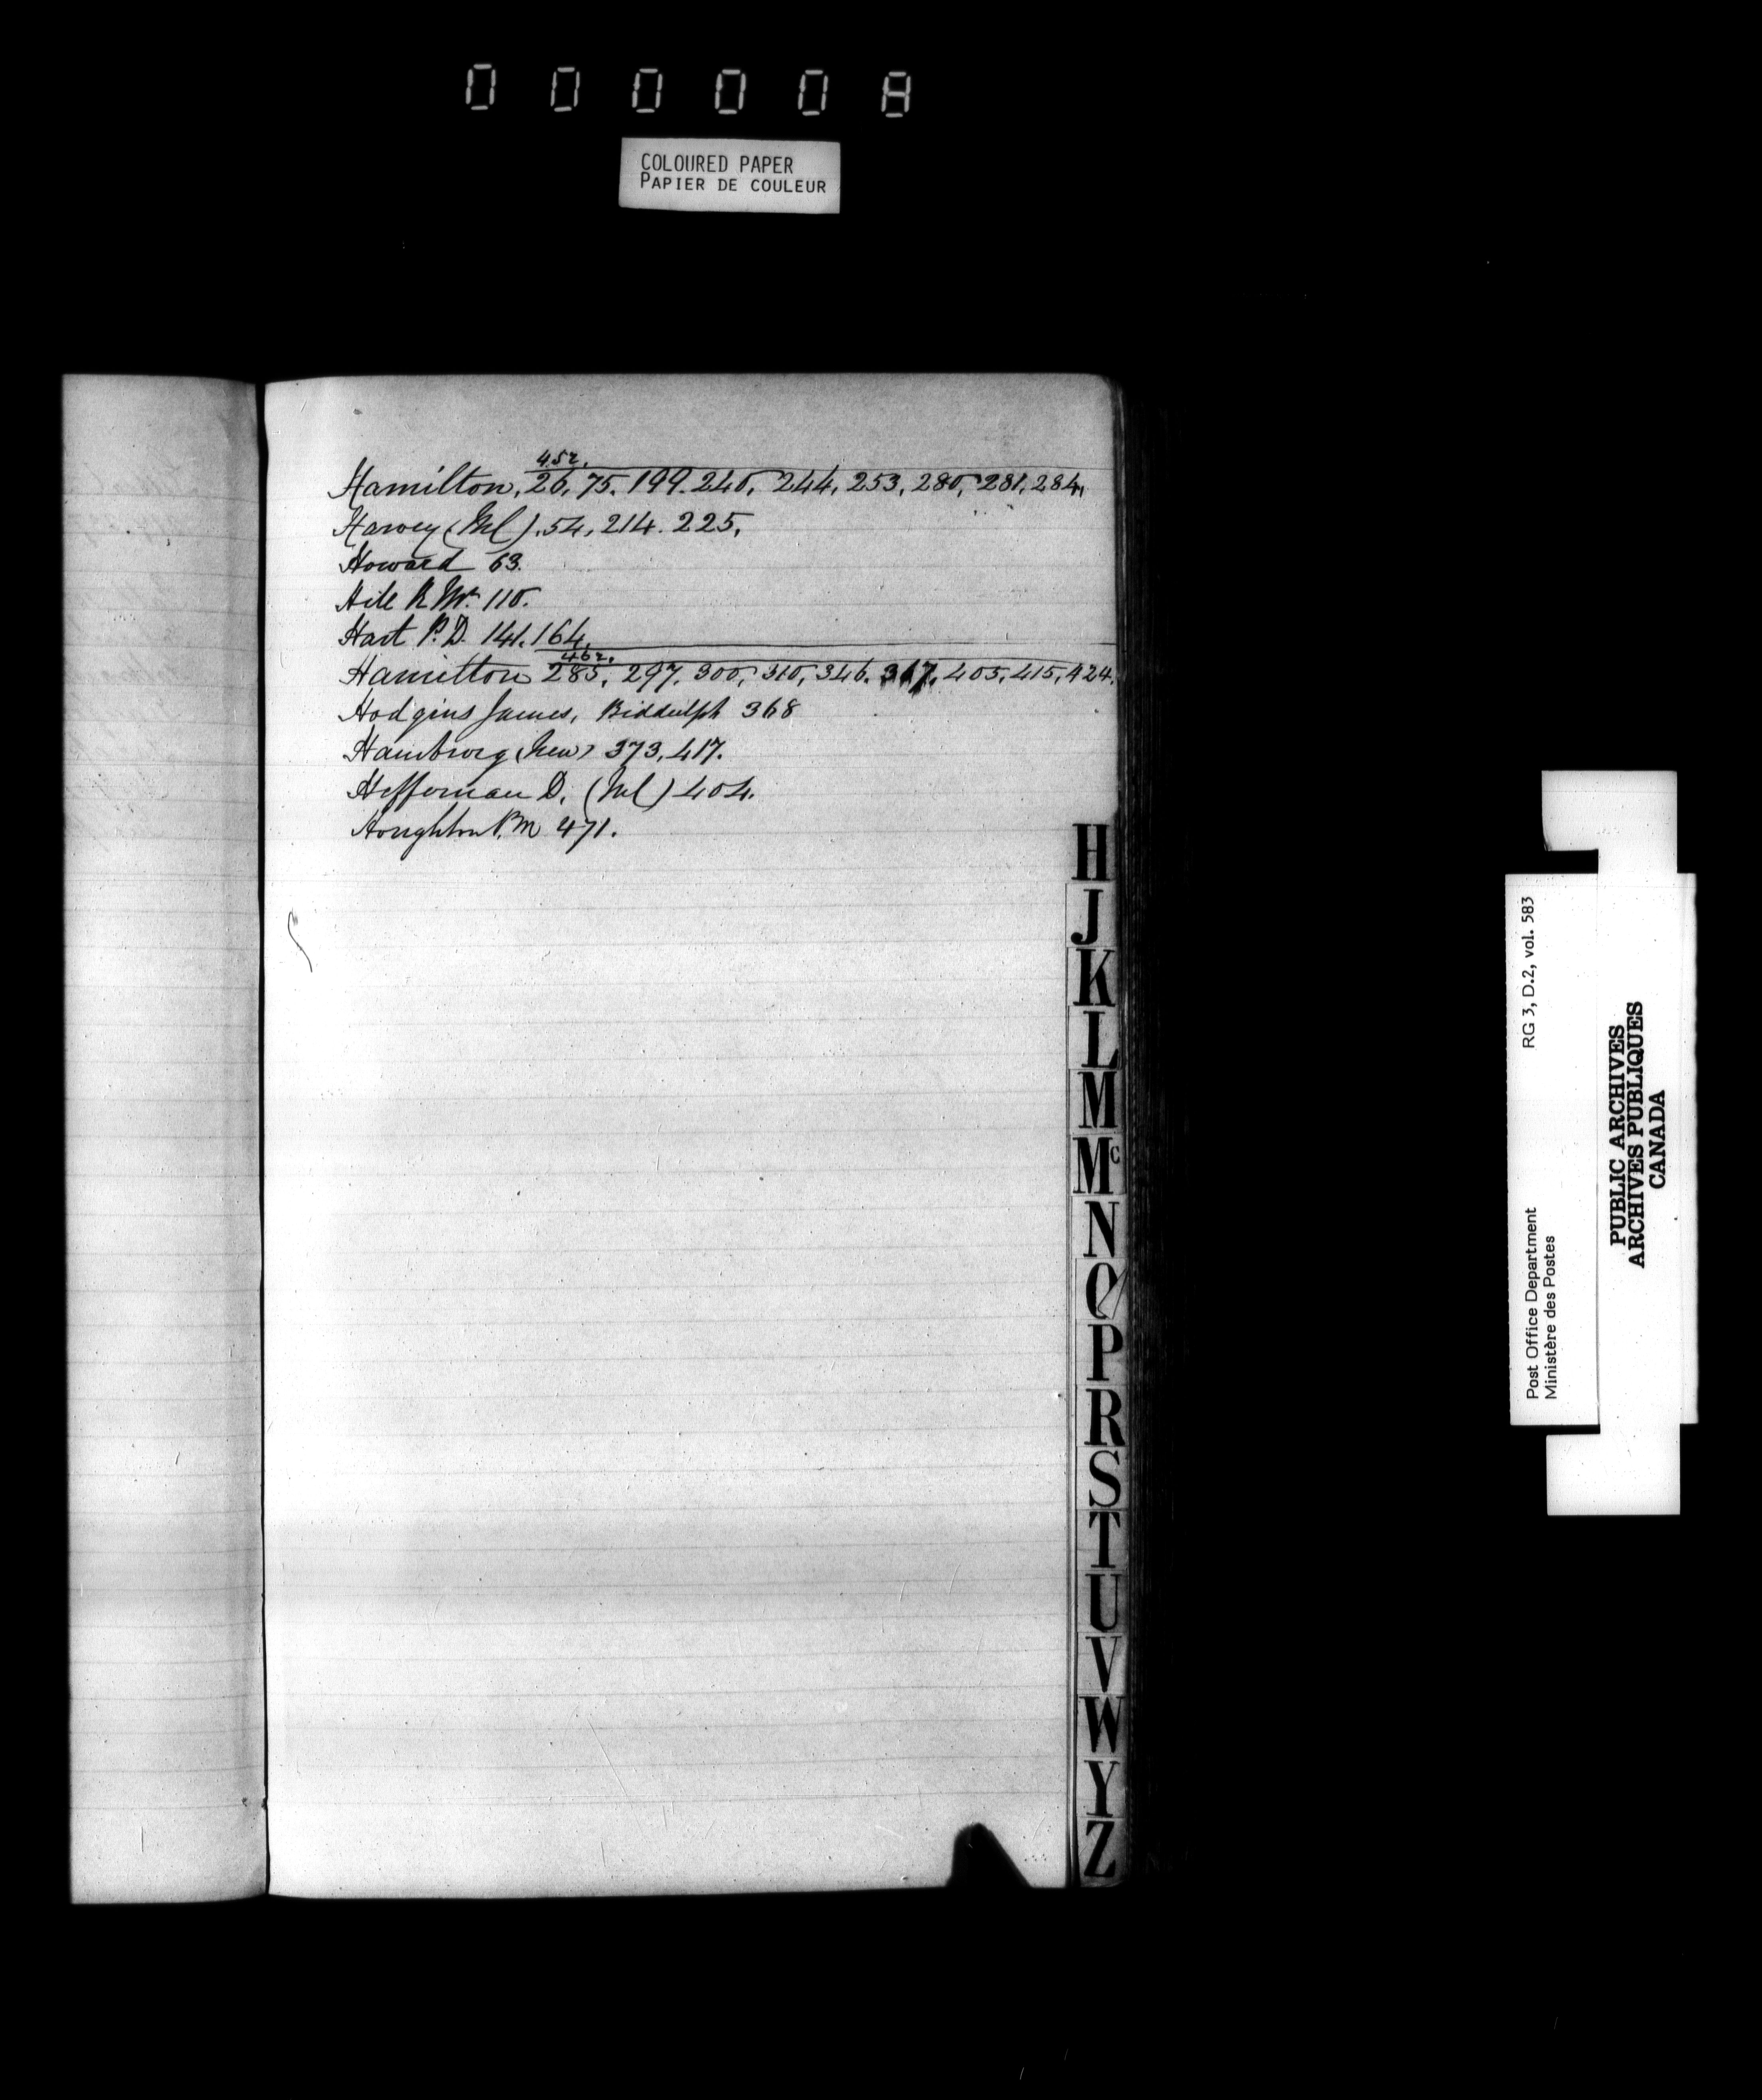 000008
COLOURED PAPER
PAPIER DE COULEUR
452.
Hamilton, 26, 75. 199. 240, 244, 253, 280, 281, 284,
Harvey (Ml). 54, 214. 225,
Howard 63.
110.
Hart P.D. 141. 164,
462.
Hamilton 285, 297, 300, 310, 346, 367, 405, 415, 424.
Hodgins James, Biddulph 368
Hamburg (New) 373, 417.
Heffernan D. (Ml) 404.
Houghton P.M 471.
H
J
K
L
M
Mc
N
O
P
R
S
T
U
V
W
Y
Z
RG 3, D.2, vol. 583
Post Office Department
Ministère des Postes
PUBLIC ARCHIVES
ARCHIVES PUBLIQUES
CANADA